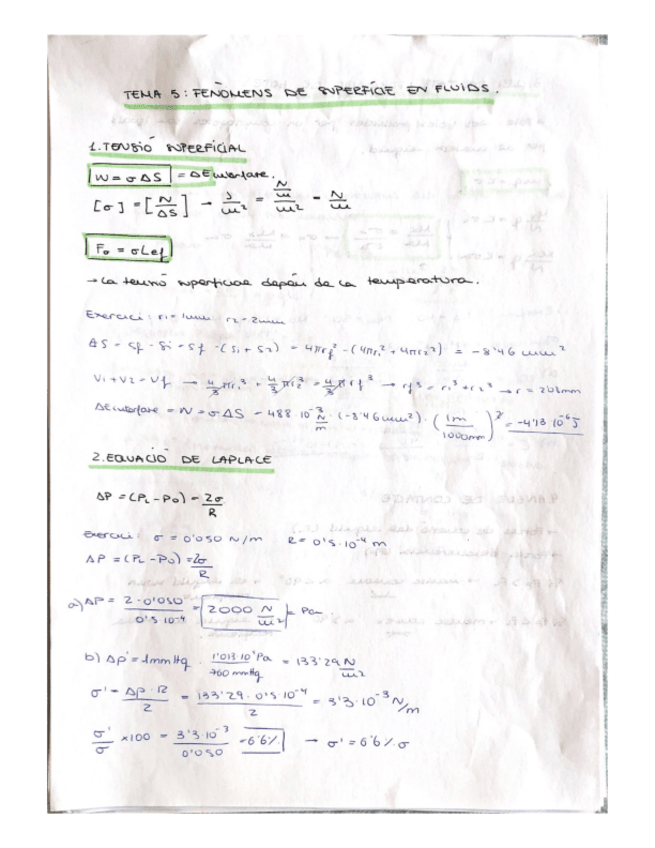 TEMA 5: FENÒMENS DE SUPERFÍCIE EN FLUIDS.
1. TENSIÓ SUPERFICIAL
W = σ ΔS = ΔE interfase.
[σ] = [N/ΔS] → J/m² = (N/m)/m² - N/m
Fσ = σ Lef
→ La tensió superficial depèn de la temperatura.
Exercici: r1 = 1mm r2 = 2mm
ΔS = Sf - Si = Sf - (S1 + S2) = 4πrf² - (4πr1² + 4πr2²) = -8'46 mm²
V1 + V2 = Vf → 4/3 πr1³ + 4/3 πr2³ = 4/3 πrf³ → rf³ = r1³ + r2³ → r = 2'08mm
ΔE interfase = W = σ ΔS = 488·10⁻³ N/m · (-8'46mm²) · (1m/1000mm)² = -4'13·10⁻⁶ J
2. EQUACIÓ DE LAPLACE
ΔP = (PL - P0) = 2σ/R
Exercici: σ = 0'050 N/m R = 0'5·10⁻⁴ m
ΔP = (PL - P0) = 2σ/R
a) ΔP = 2·0'050/0'5·10⁻⁴ = 2000 N/m² = Pa
b) Δp' = 1mmHg · 1'013·10⁵ Pa/760 mmHg = 133'29 N/m²
σ' = Δp · R/2 = 133'29 · 0'5·10⁻⁴/2 = 3'3·10⁻³ N/m
σ'/σ x100 = 3'3·10⁻³/0'050 = 6'6% → σ' = 6'6% σ